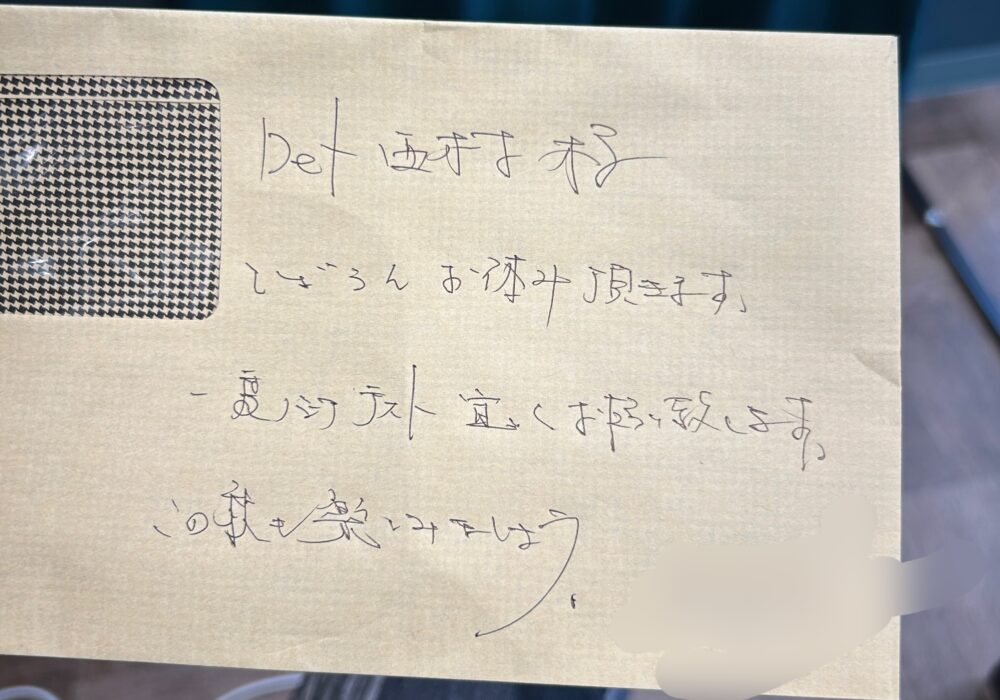 Det 西村 様
お休み頂きます。
テスト 宜しくお願い致します。
この秋も楽しみましょう.